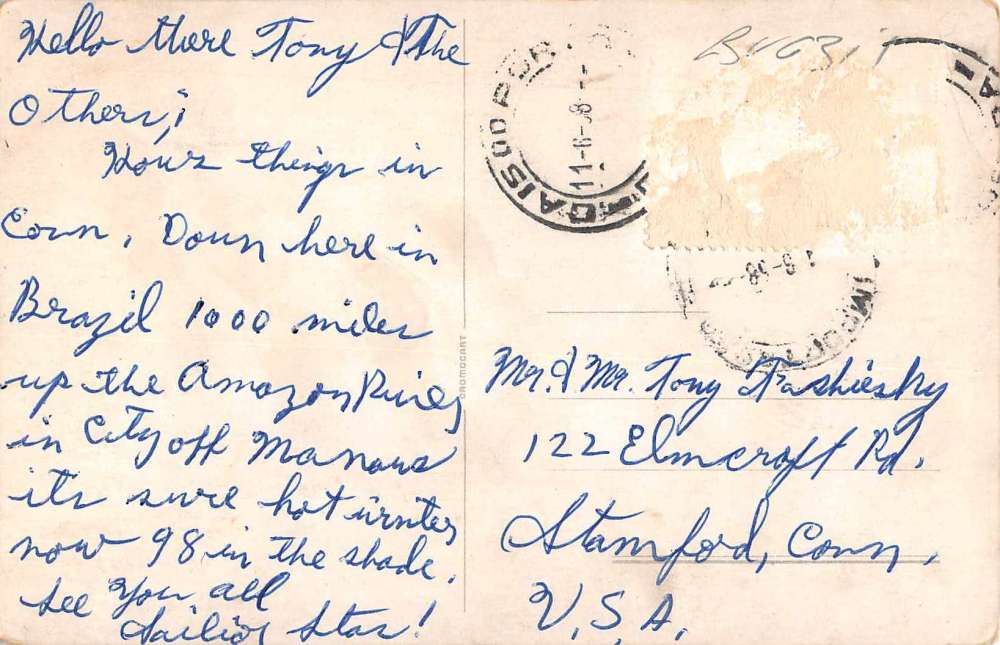 Hello there Tony & The
Others,
Hows things in
Conn. Down here in
Brazil 1000 miles
up the Amazon River
in City off Manaus
its sure hot winter
now 98 in the shade.
See You all
Sailior Star!
CROMOCART
Mr. & Mr. Tony
122 Elmcroft Rd.
Stamford, Conn.
U.S.A.